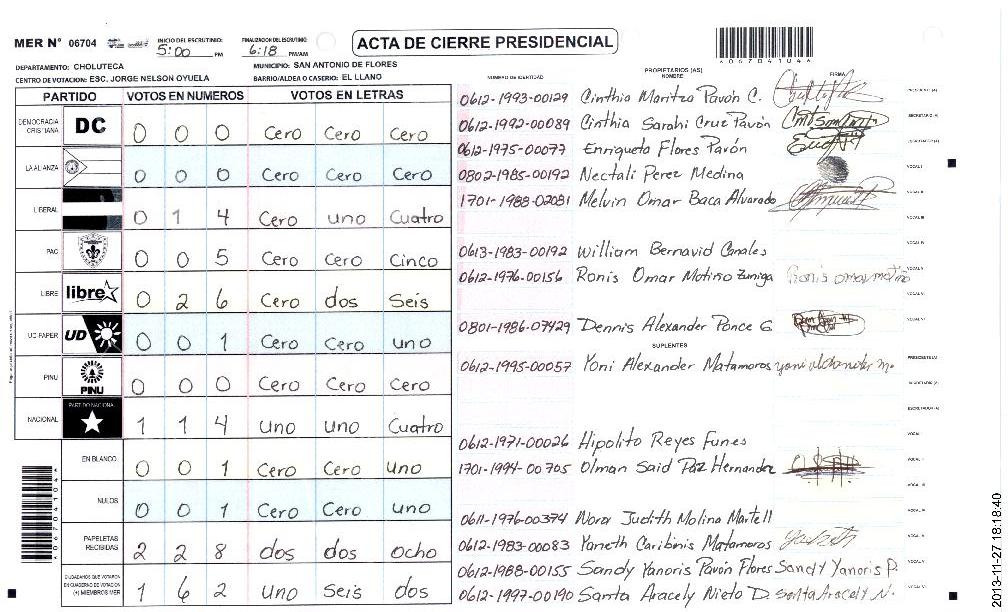 MER Nº 06704 INICIO DEL ESCRUTINIO: 5:00 PM FINALIZACION DEL ESCRUTINIO: 6:18 PM/AM
ACTA DE CIERRE PRESIDENCIAL
* 0 6 7 0 4 1 0 4 *
DEPARTAMENTO: CHOLUTECA MUNICIPIO: SAN ANTONIO DE FLORES
CENTRO DE VOTACION: ESC. JORGE NELSON OYUELA BARRIO/ALDEA O CASERIO: EL LLANO
PARTIDO VOTOS EN NUMEROS VOTOS EN LETRAS
DEMOCRACIA CRISTIANA DC 0 0 0 Cero Cero Cero
LA ALIANZA 0 0 0 Cero Cero Cero
LIBERAL 0 1 4 Cero uno Cuatro
PAC 0 0 5 Cero Cero Cinco
LIBRE libre 0 2 6 Cero dos Seis
UD FAPER UD 0 0 1 Cero Cero uno
PINU PINU 0 0 0 Cero Cero Cero
NACIONAL PARTIDO NACIONAL 1 1 4 Uno Uno Cuatro
EN BLANCO 0 0 1 Cero Cero uno
NULOS 0 0 1 Cero Cero uno
PAPELETAS RECIBIDAS 2 2 8 dos dos ocho
CIUDADANOS QUE VOTARON EN CUADERNO DE VOTACION (+) MIEMBROS MER 1 6 2 Uno Seis dos
* 0 6 7 0 4 1 0 4 *
NUMERO DE IDENTIDAD PROPIETARIOS (AS) NOMBRE FIRMA
0612-1993-00129 Cinthia Maritza Pavón C. PRESIDENTE (A)
0612-1992-00089 Cinthia Sarahi Cruz Pavón SECRETARIO (A)
0612-1975-00077 Enriqueta Flores Pavón
0802-1985-00192 Nectali Perez Medina VOCAL I
1701-1988-02081 Melvin Omar Baca Alvarado VOCAL II
VOCAL III
0613-1983-00192 William Bernavid Canales VOCAL IV
0612-1976-00156 Ronis Omar Motino Zuniga Ronis omar motino VOCAL V
VOCAL VI
0801-1986-07429 Dennis Alexander Ponce G
SUPLENTES
0612-1995-00057 Yoni Alexander Matamoros yoni alexander m. PRESIDENTE (A)
SECRETARIO (A)
0612-1971-00026 Hipolito Reyes Funes VOCAL I
1701-1994-00705 Olman Said Paz Hernandez
VOCAL III
0611-1976-00374 Nora Judith Molina Martell VOCAL IV
0612-1983-00083 Yaneth Caribinis Matamoros VOCAL V
0612-1988-00155 Sandy Yanoris Pavón Flores Sandy Yanoris P.
0612-1997-00190 Santa Aracely Nieto D. Santa Aracely N.
2013-11-27 18:18:40